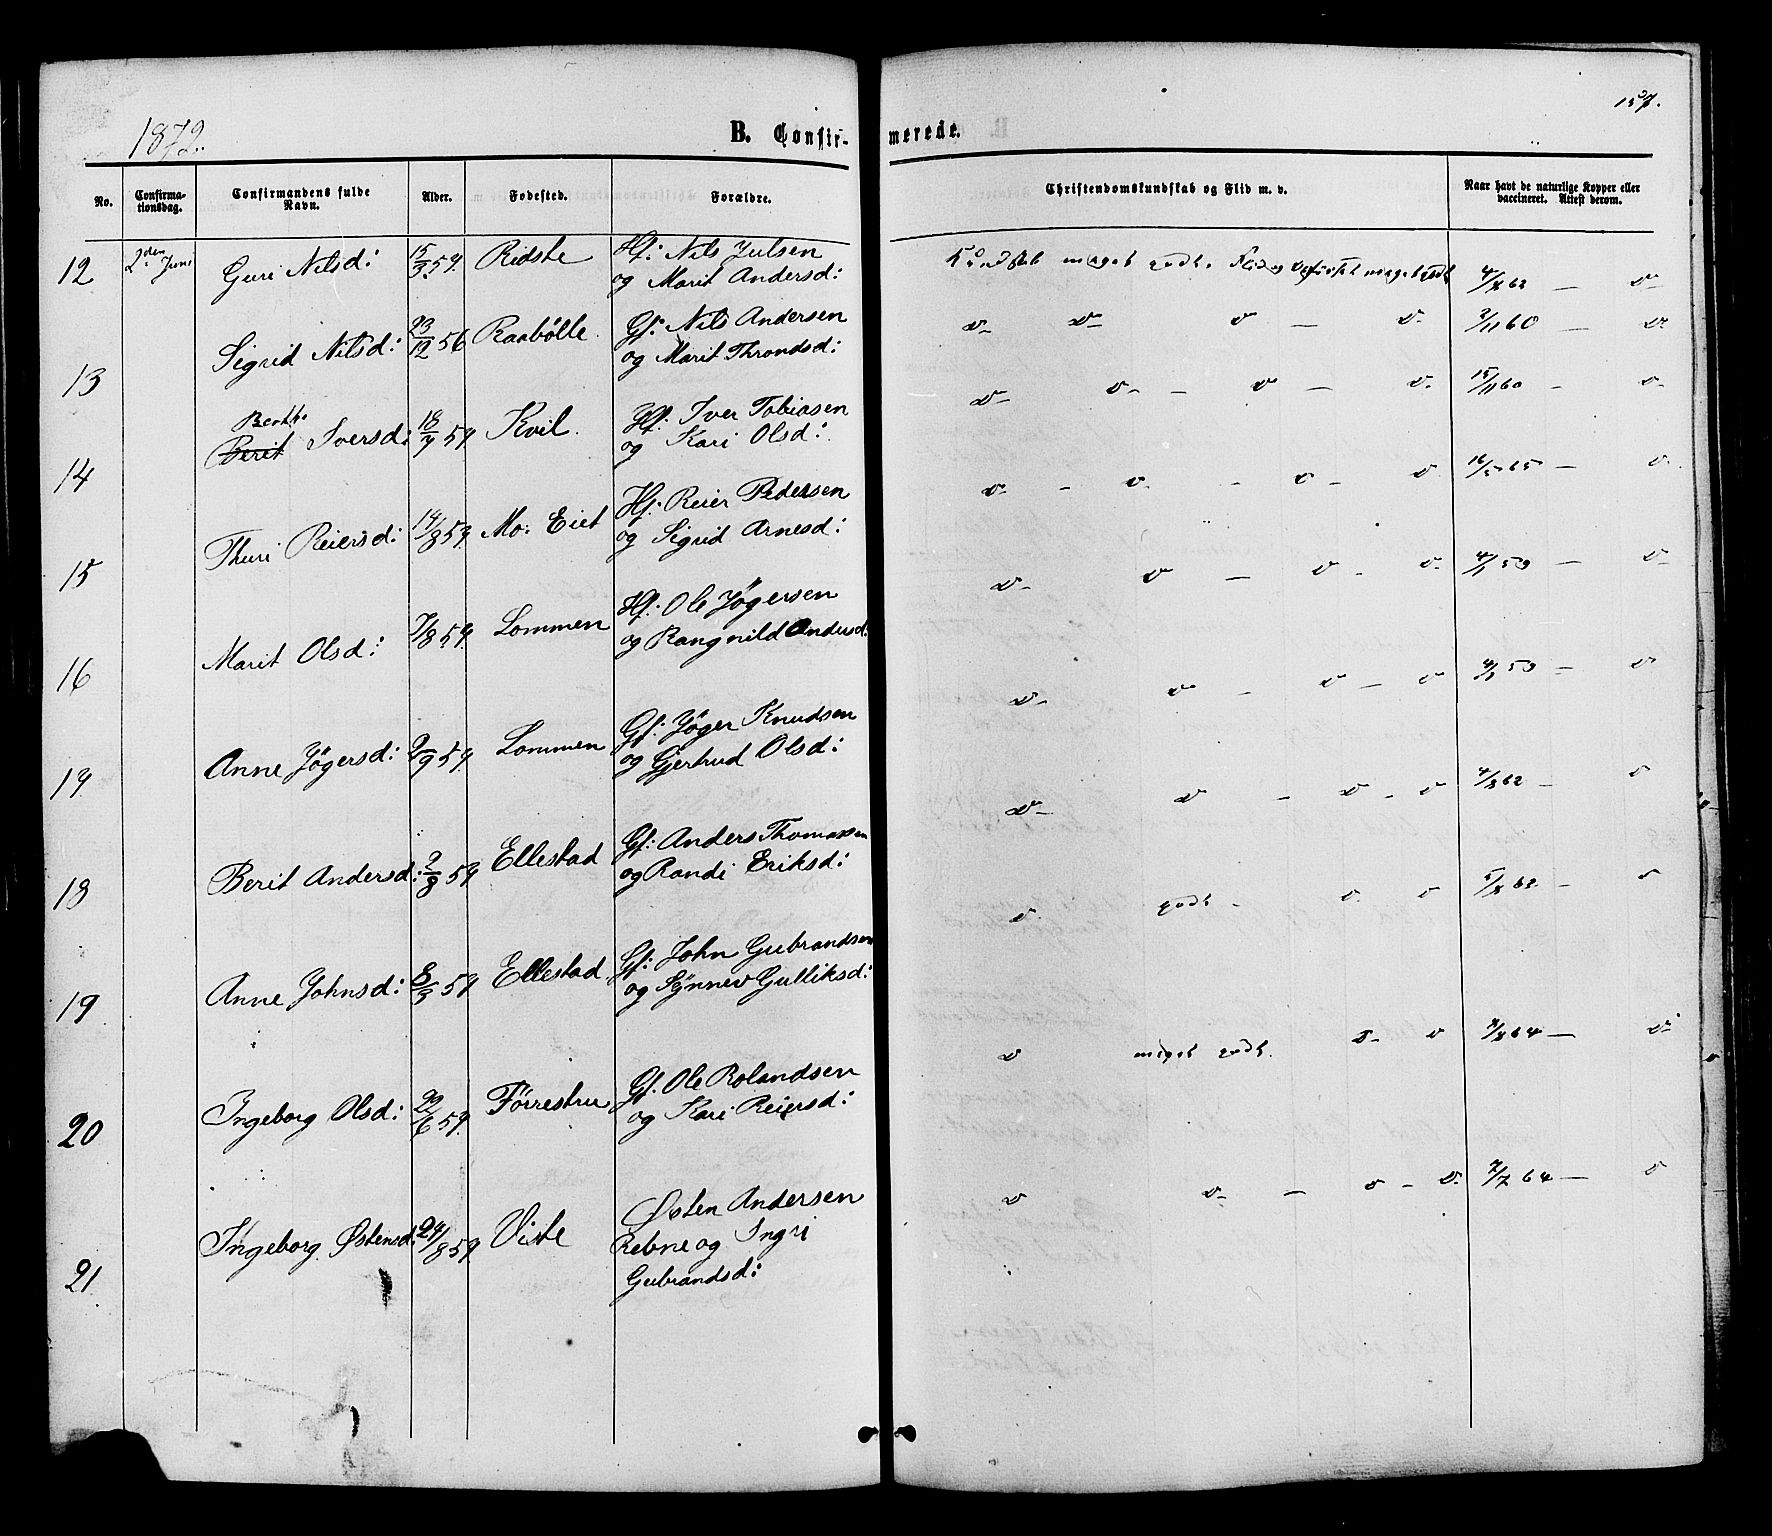 157.
1872.
B. Confir- merede.
No. Confirma-tionsdag. Confirmandens fulde Navn. Alder. Fødested. Forældre. Christendomskundskab og Flid m. v. Naar havt de naturlige Kopper eller vaccineret. Attest derom.
12 2den Juni Guri Nilsd: 15/3 57. Ridste Hf: Nils Julsen
og Marit Andersd: Kundskab meget godt. Flid og meget godt 4/8 62 — v—
13 Sigrid Nilsd: 23/12 56 Raabølle. Gf: Nils Andersen
og Marit Throndsd: v— v— v — v. 3/11 60 — v
Berthe
14 Berit Iversd: 18/7 57 Kvil. Hf: Iver Tobiasen
og Kari Olsd: v— v— — v — v. 15/11 60 — v—
15 Thuri Reiersd: 14/8 57. Mo: Eiet Hf: Reier Pedersen
og Sigrid Arnesd: v— — v. — v — v 16/5 65 — v.
16 Marit Olsd: 7/8 57. Lommen Hf: Ole Jøgersen
og Rangnild Andersd: v— v — v — v. — v—
17 Anne Jøgersd: 2/9 57. Lommen Gf: Jøger Knudsen
og Gjertrud Olsd: v— v — v — v — v
18 Berit Andersd: 2/8 57 Ellestad Gf: Anders Thomassen
og Randi Eriksd: v— v — v — v 4/8 62 — v
19 Anne Johnsd: 8/3 57 Ellestad. Gf: John Gubrandsen
og Synnev Gulliksd: v. godt — v. v 5/8 62 — v
20 Ingeborg Olsd: 22/6 57. Førrestru Gf: Ole Rolandsen
og Kari Reiersd: v meget godt. v— v 7/8 64 — v
21 Ingeborg Østensd: 24/8 57. Viste Østen Andersen
Rebne og Ingri
Gubrandsd: v v— — v — v. 7/7 64 — v